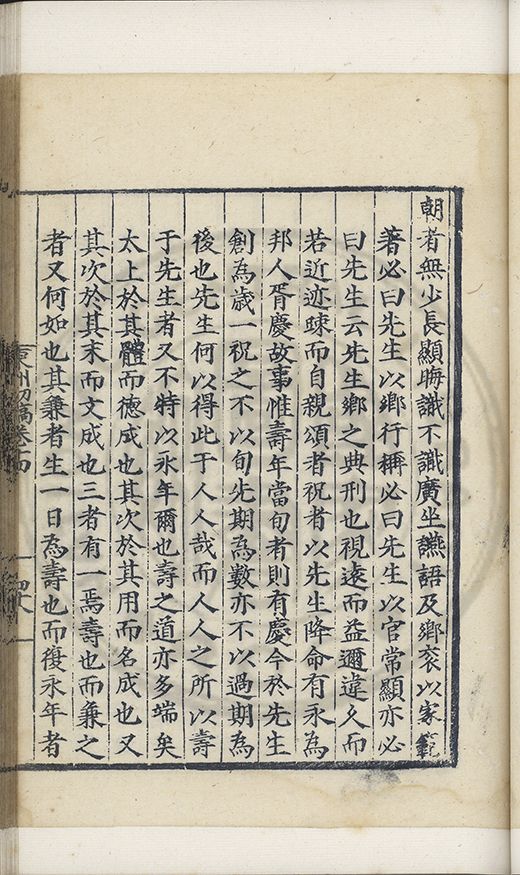 朝者無少長顯晦識不識廣坐讌語及鄉衮以家範
著必曰先生以鄉行稱必曰先生以官常顯亦必
曰先生云先生鄉之典刑也視遠而益邇違久而
若近迹疎而自親頌者祝者以先生降命有永為
邦人胥慶故事惟壽年當旬者則有慶今於先生
創為歲一祝之不以旬先期為數亦不以過期為
後也先生何以得此于人人哉而人人之所以壽
于先生者又不特以永年爾也壽之道亦多端矣
太上於其體而德成也其次於其用而名成也又
其次於其末而文成也三者有一焉壽也而兼之
者又何如也其兼者生一日為壽也而復永年者